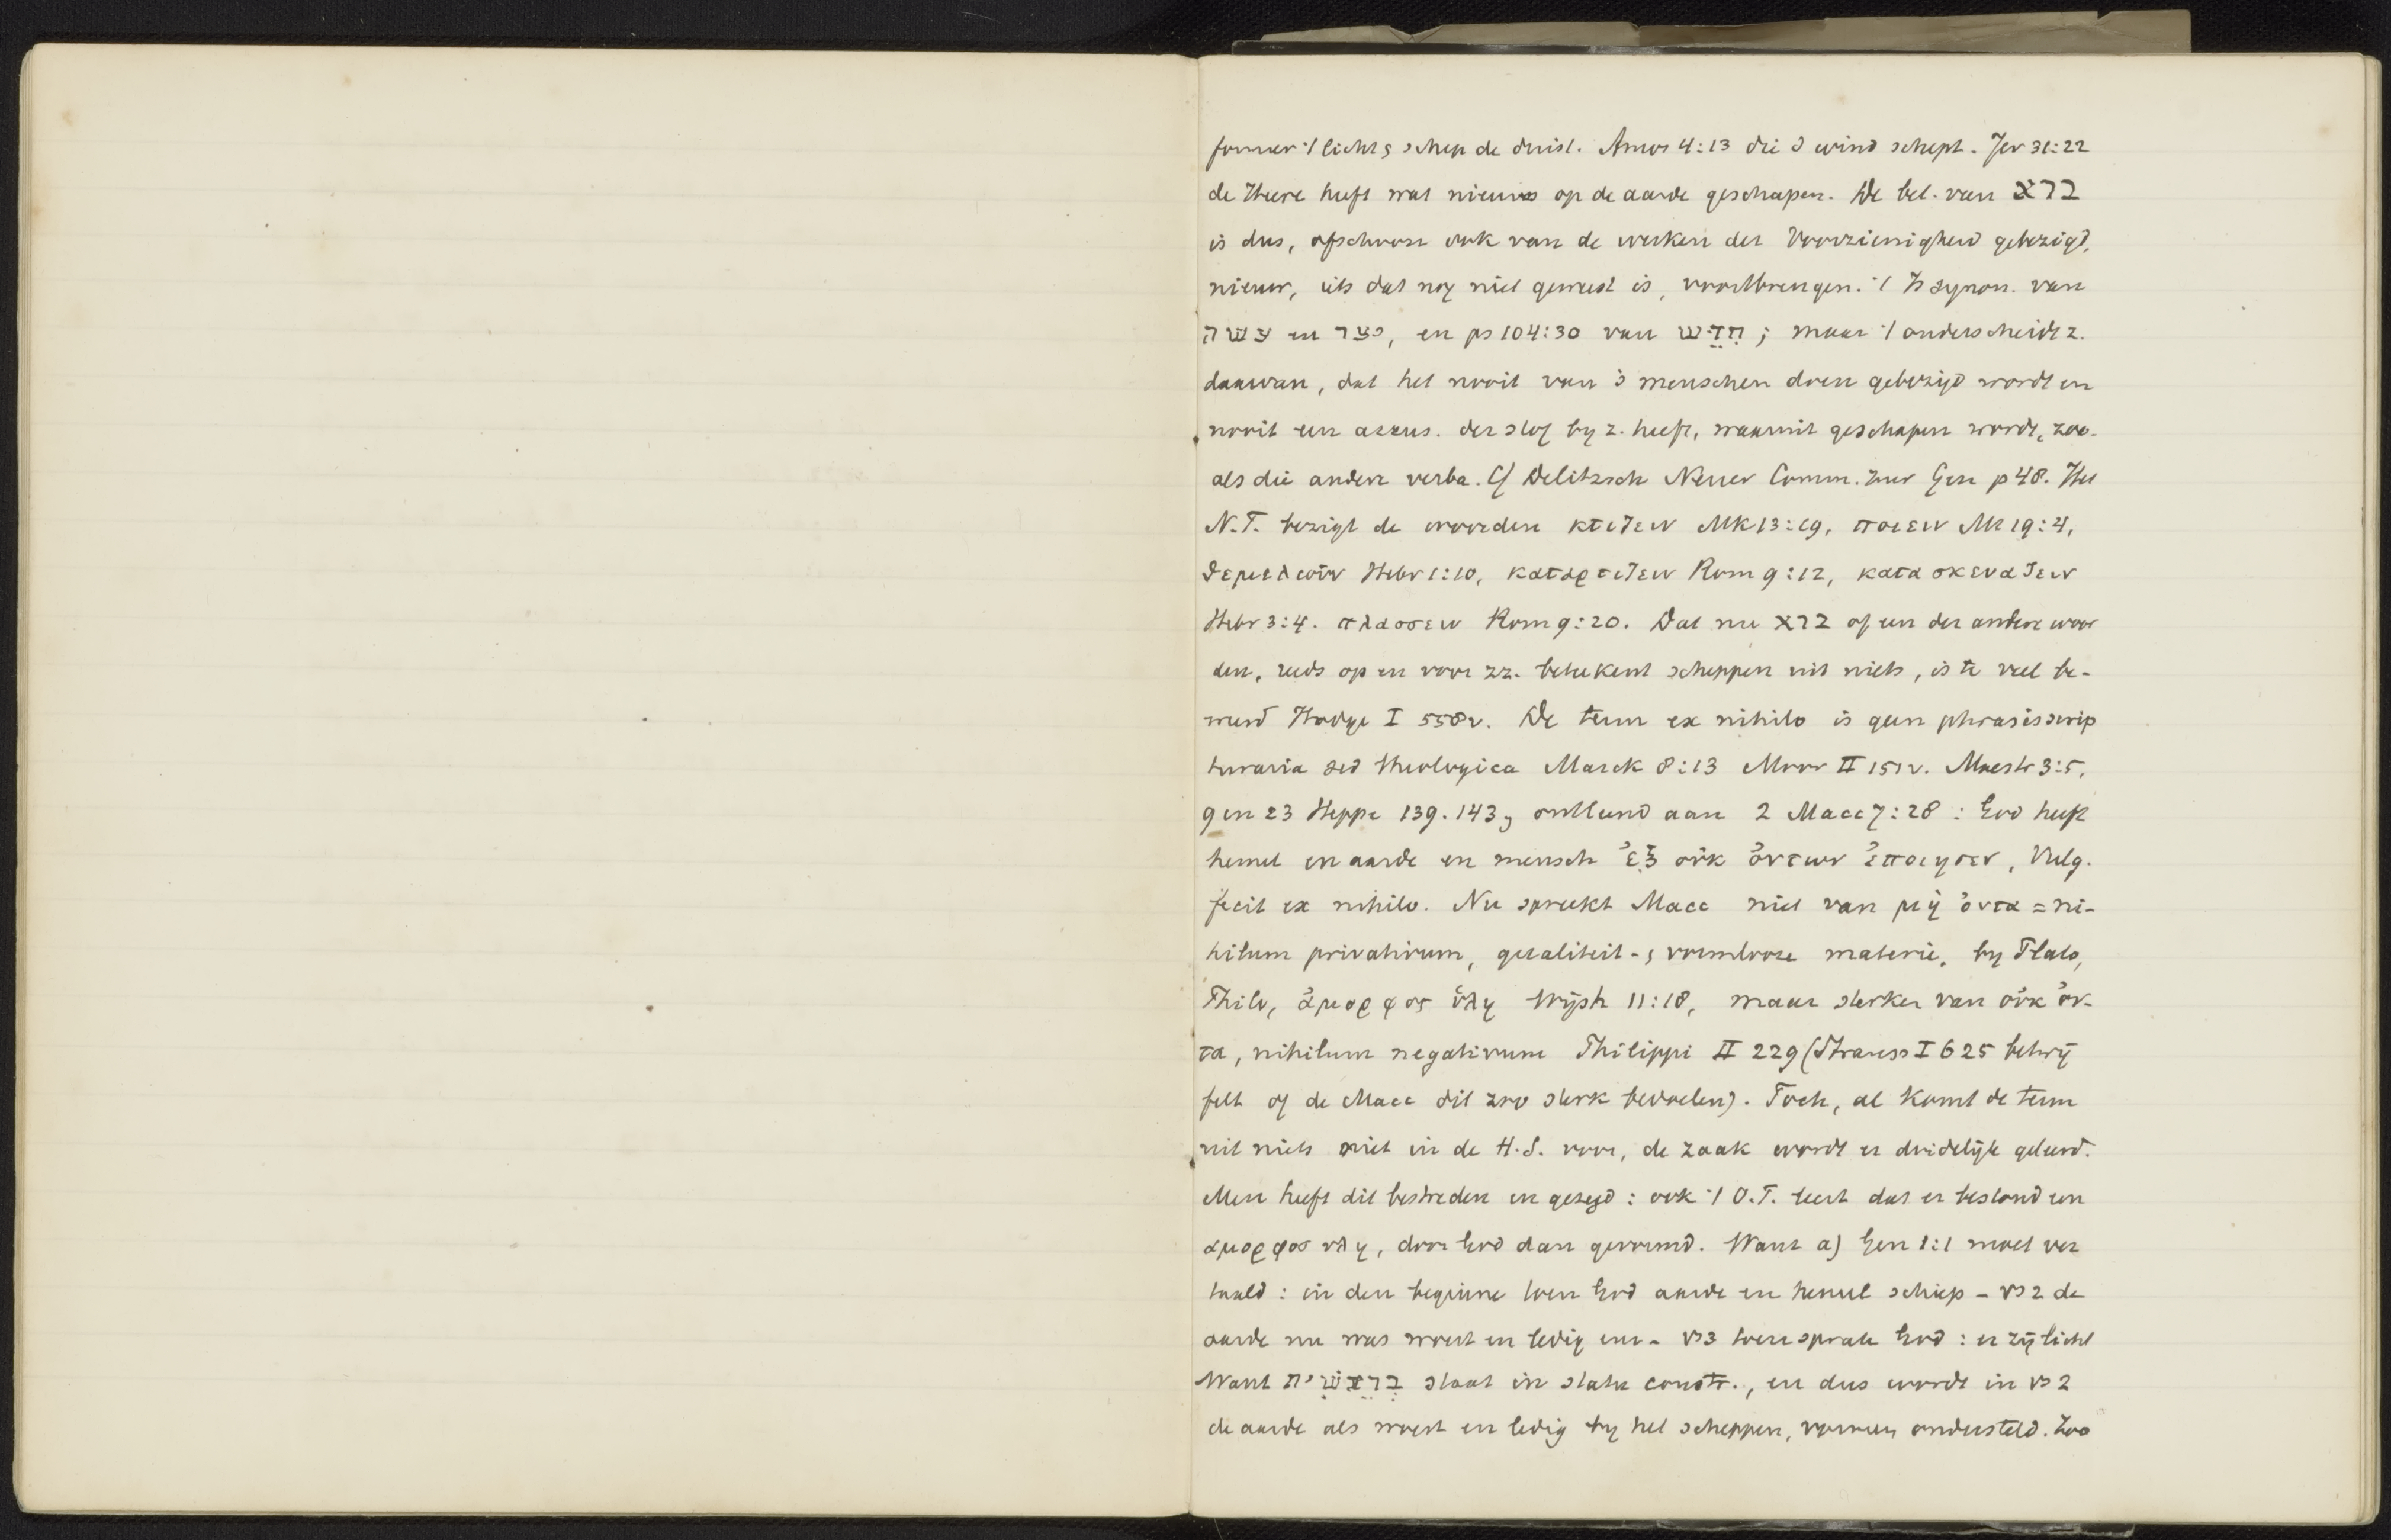 formeer 't licht & schep de duist. Amos 4:13 die d wind schept. Jer 31:22
de Heere heeft wat nieuws op de aarde geschapen. De bet. van ברא
is dus, ofschoon ook van de werken der Voorzienigheid gebezigd,
nieuw, iets dat nog niet geweest is, voortbrengen. 't Is synon. van
עשה en יצר, en ps 104:30 van חִדֵּשׁ; maar 't onderscheidt z.
daarvan, dat het nooit van 's menschen doen gebezigd wordt en
nooit een accus. der stof by z. heeft, waaruit geschapen wordt, zoo-
als die andere verba. Cf Delitzsch Neuer Comm. zur Gen p 48. Het
N.T. bezigt de woorden κτιζειν Mk 13:19, ποιειν Mt 19:4,
θεμελιοῦν Hebr 1:10, καταρτιζειν Rom 9:12, κατασκευαζειν
Hebr 3:4. πλασσειν Rom 9:20. Dat nu ברא of een der andere woor
den, reeds op en voor zz. beteekent scheppen uit niets, is te veel be-
weerd Hodge I 558v. De term ex nihilo is geen phrasis scrip
turaria sed theologica Marck 8:13 Moor II 151v. Maestr 3:5,
9 en 23 Heppe 139.143, ontleend aan 2 Macc 7:28: God heeft
hemel en aarde en mensch ἐξ οὐκ ὄντων ἐποιησεν, Vulg.
fecit ex nihilo. Nu spreekt Macc niet van μὴ ὄντα = ni-
hilum privativum, qualiteit- & vormlooze materie, by Plato,
Philo, ἄμορφος ὕλη Wijsh 11:18, maar sterker van οὐκ ὄν-
τα, nihilum negativum Philippi II 229 (Strauss I 625 betwij
felt of de Macc dit zoo sterk bedoelen). Toch, al komt de term
uit niets niet in de H.S. voor, de zaak wordt er duidelijk geleerd.
Men heeft dit bestreden en gezegd: ook 't O.T. leert dat er bestond een
αμορφος υλη, door God dan gevormd. Want a) Gen 1:1 moet ver
taald: in den beginne toen God aarde en hemel schiep - vs 2 de
aarde nu was woest en ledig enz - vs 3 toen sprak God: er zij licht
Want בְּרֵאשִׁית staat in statu constr., en dus wordt in vs 2
de aarde als woest en ledig by het scheppen, vormen ondersteld. Zoo